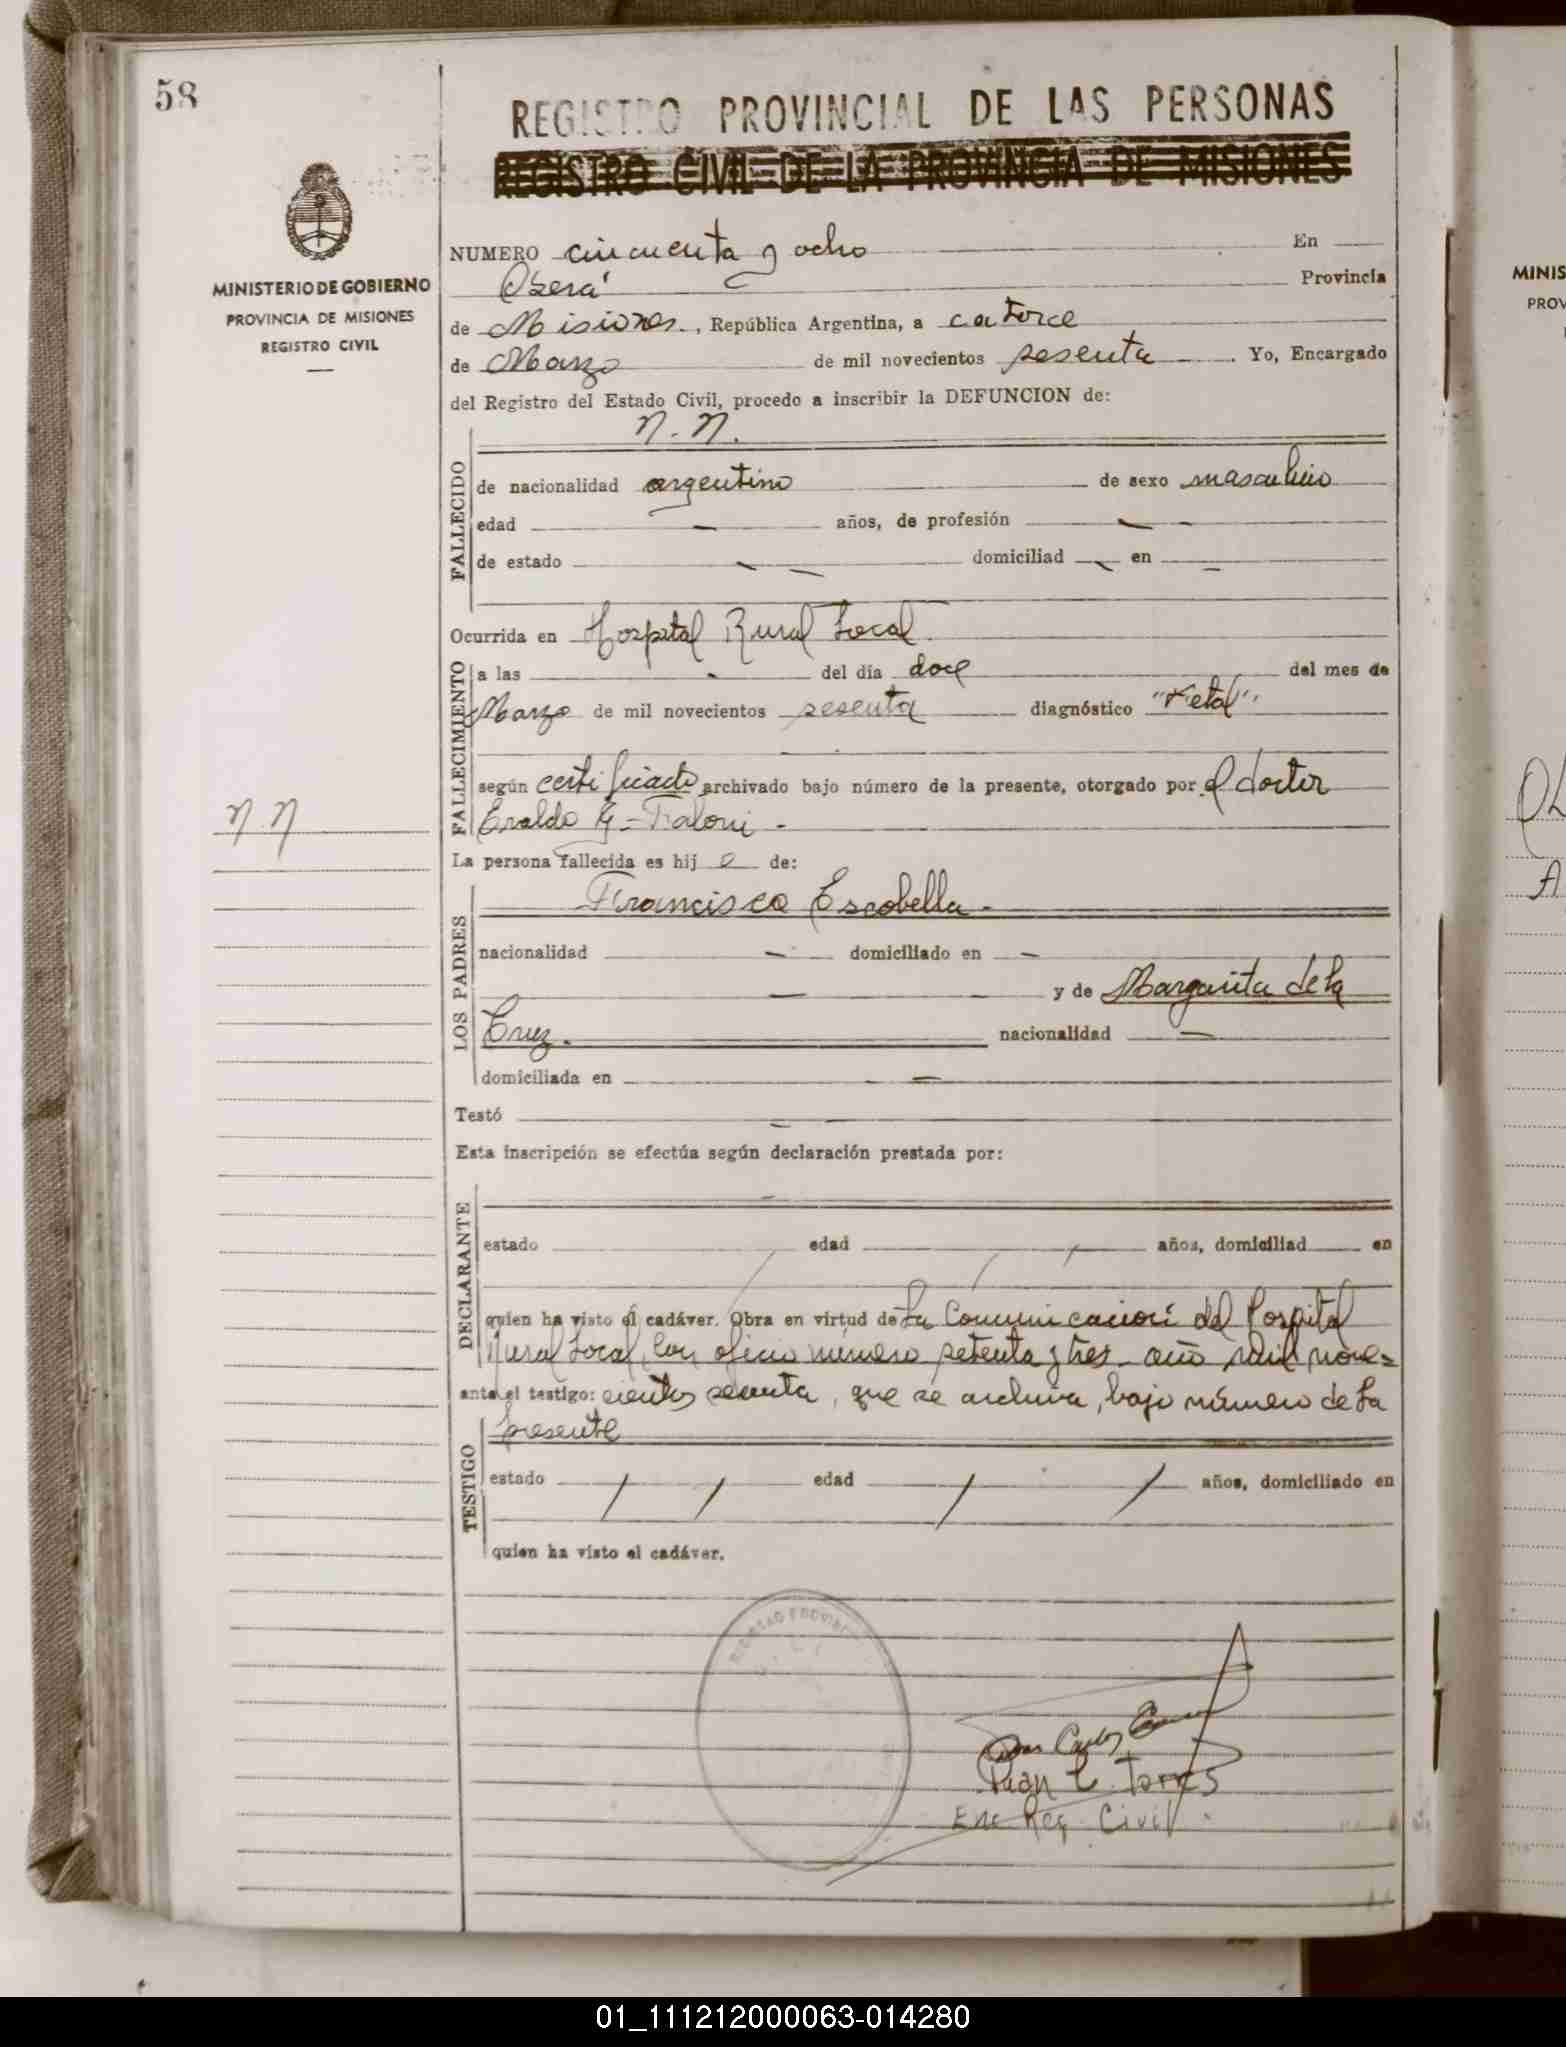 58
REGISTRO PROVINCIAL DE LAS PERSONAS
REGISTRO CIVIL DE LA PROVINCIA DE MISIONES
MINISTERIO DE GOBIERNO
PROVINCIA DE MISIONES
REGISTRO CIVIL
NUMERO cincuenta y ocho En
Oberá Provincia
de Misiones, República Argentina, a catorce
de Marzo de mil novecientos sesenta. Yo, Encargado
del Registro del Estado Civil, procedo a inscribir la DEFUNCION de:
N. N.
FALLECIDO
de nacionalidad argentino de sexo masculino
edad — años, de profesión — -
de estado — — domiciliad — en —
Ocurrida en Hospital Rural Local.
FALLECIMIENTO
a las - del día doce del mes de
Marzo de mil novecientos sesenta diagnóstico "Fetal".
según certificado archivado bajo número de la presente, otorgado por el doctor
Eraldo G. Faloni -
N N
La persona fallecida es hij o de:
LOS PADRES
Francisco Escobella -
nacionalidad — domiciliado en —
— - y de Margarita de la
Cruz. nacionalidad —
domiciliada en —
Testó — —
Esta inscripción se efectúa según declaración prestada por:
DECLARANTE
estado edad años, domiciliad en
quien ha visto el cadáver. Obra en virtud de La Comunicación del Hospital
Rural Local, con oficio número setenta y tres - año mil nove=
ante el testigo: cientos sesenta, que se archiva, bajo número de la
presente
TESTIGO
estado / / edad / / años, domiciliado en
quien ha visto el cadáver.
Juan Carlos
Juan C. Torres
Enc Reg. Civil
MINIS
PROV
01_111212000063-014280